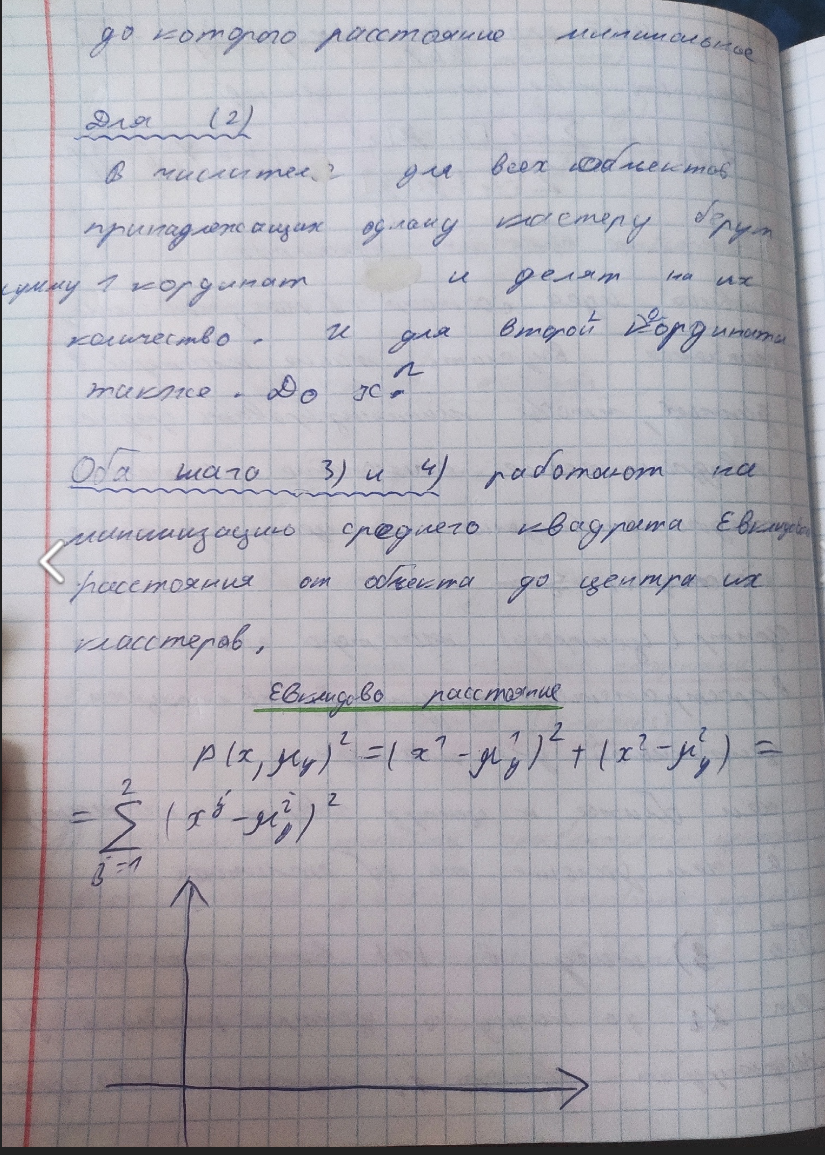 до которого расстояние минимальное
Для (2)
В числител. для всех объектов
принадлежащих одному кластеру берут
сумму 1 кординат и делят на их
количество. И для второй координаты
также. До x^n
Оба шага 3) и 4) работают на
минимизацию среднего квадрата Евклидова
расстояния от объекта до центра их
класстеров,
Евклидово расстояние
ρ(x, μ_y)^2 = (x^1 - μ_y^1)^2 + (x^2 - μ_y^2) =
= ∑_{j=1}^{2} (x^j - μ_y^2)^2